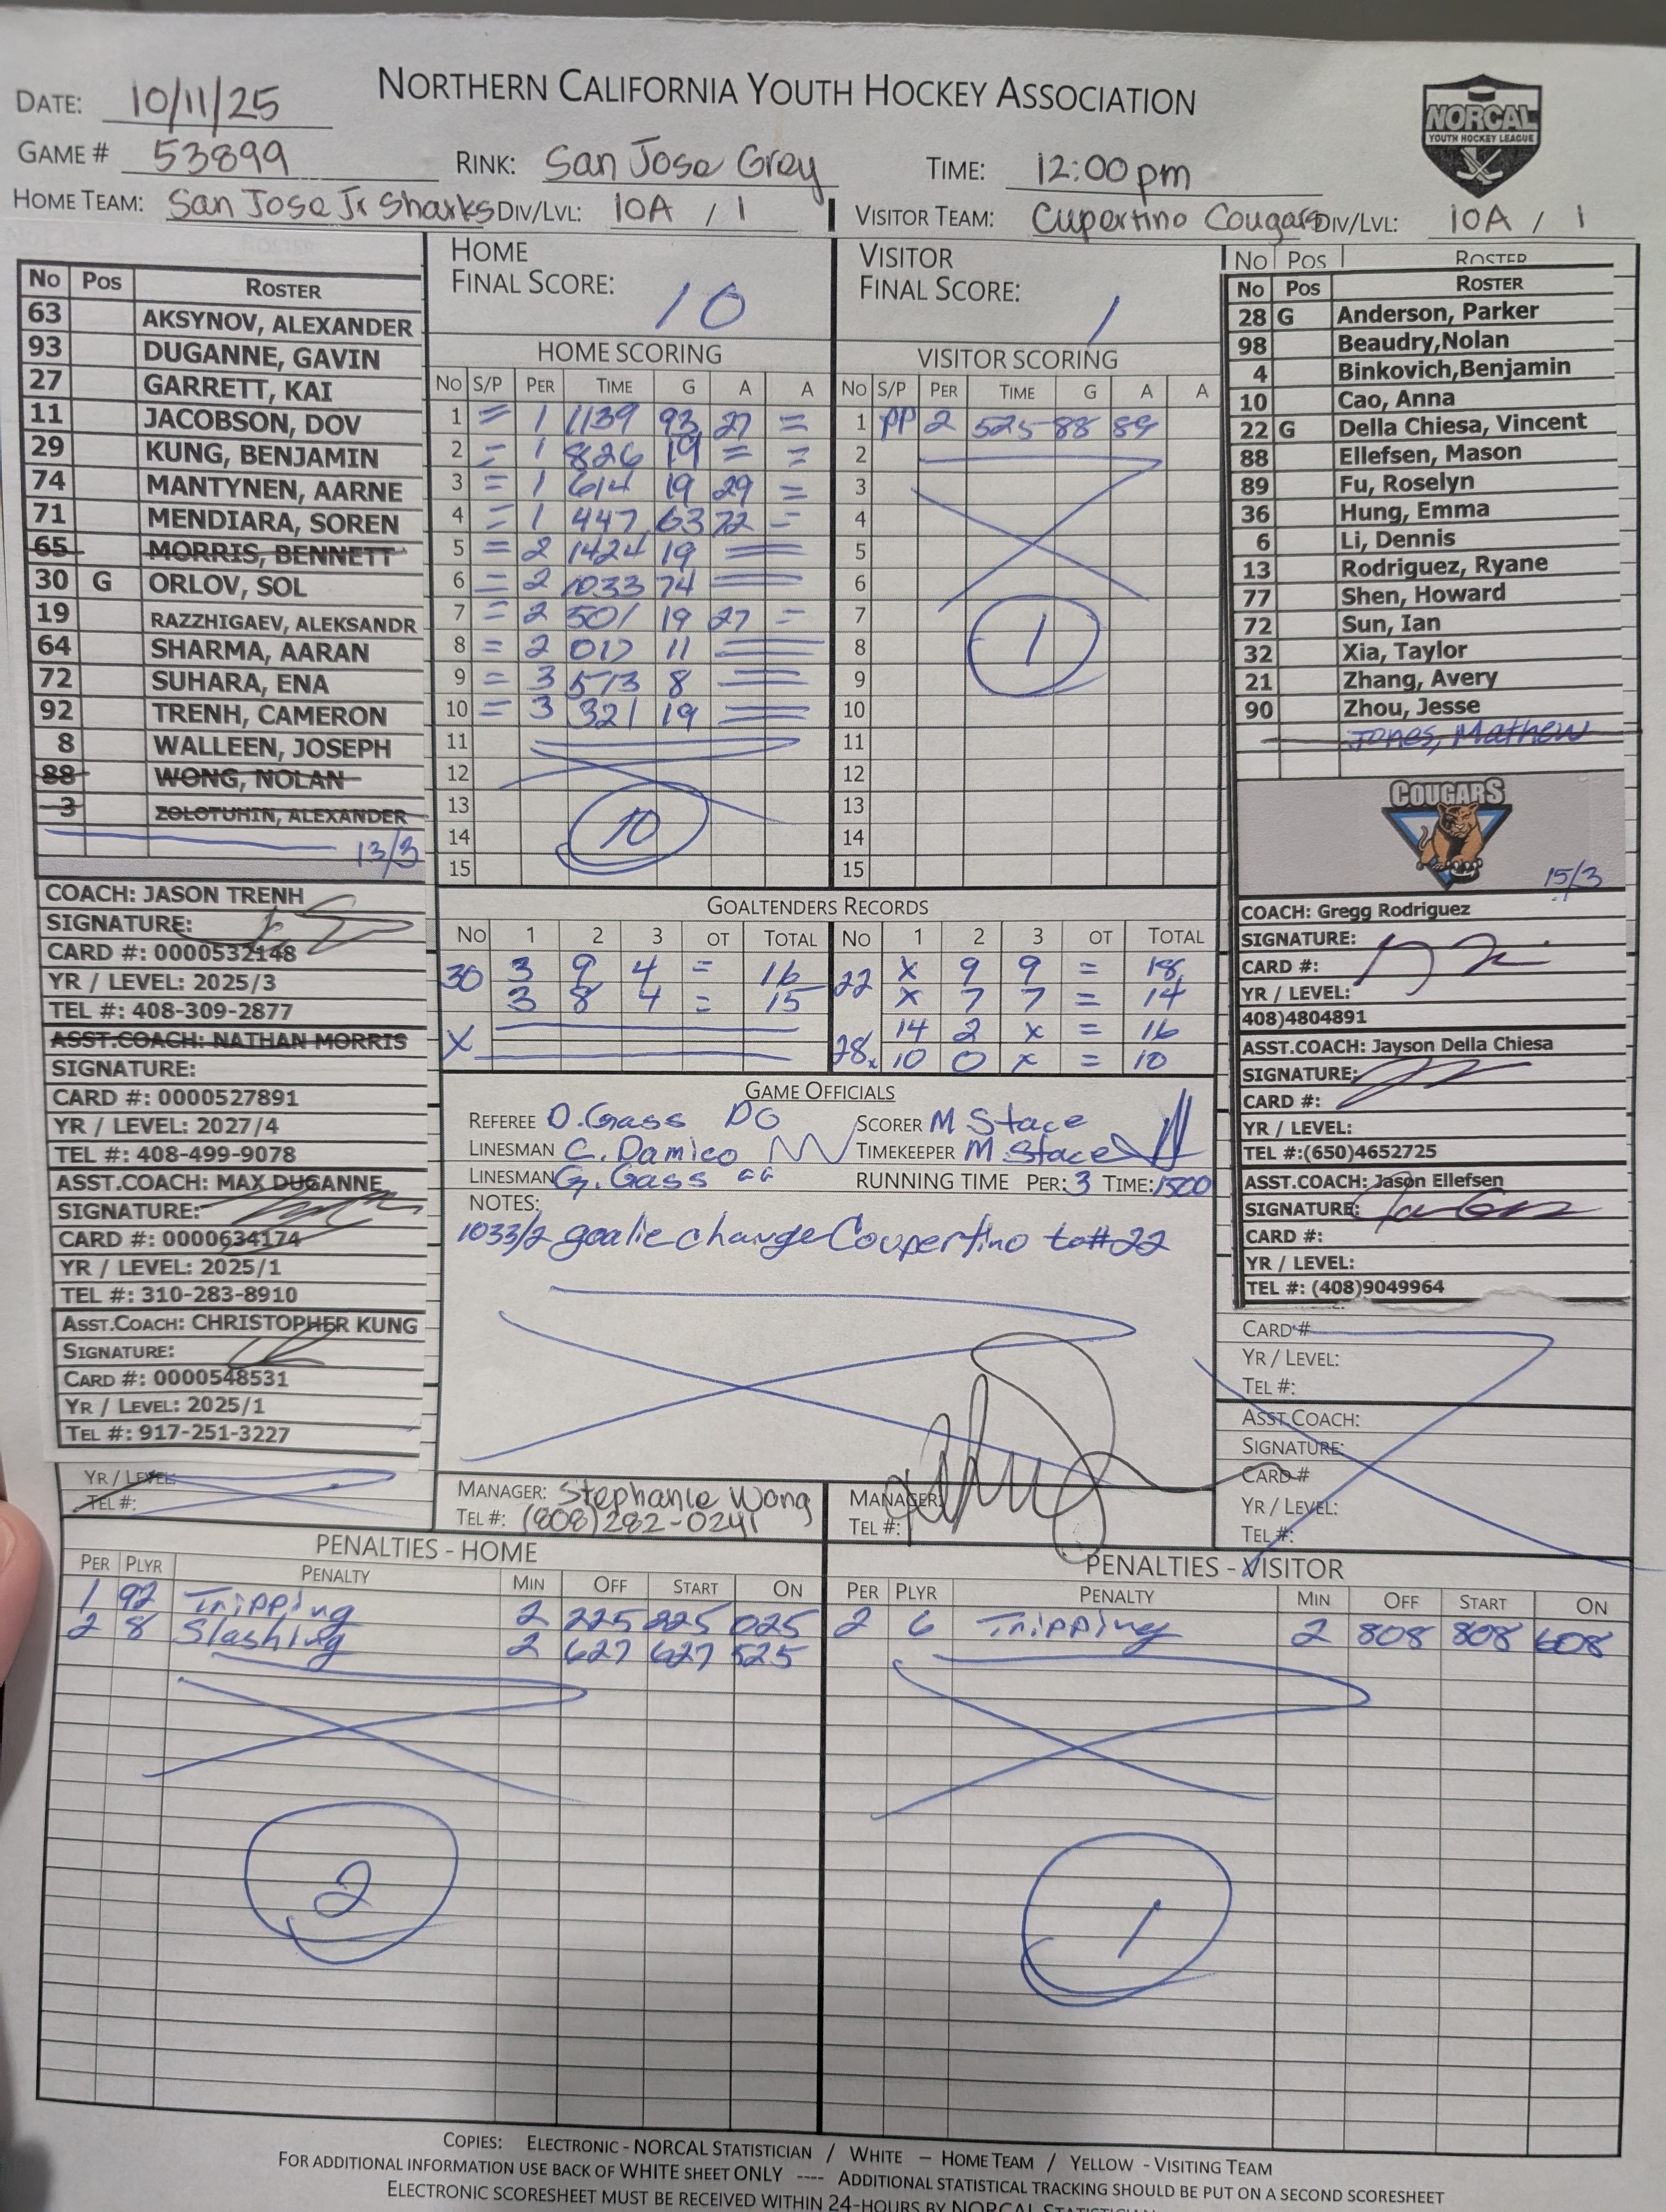 NORTHERN CALIFORNIA YOUTH HOCKEY ASSOCIATION
NORCAL
YOUTH HOCKEY LEAGUE
DATE: 10/11/25
GAME # 53899 RINK: San Jose Grey TIME: 12:00pm
HOME TEAM: San Jose Jr Sharks DIV/LVL: 10A / 1 VISITOR TEAM: Cupertino Cougars DIV/LVL: 10A / 1
No Pos ROSTER
63 AKSYNOV, ALEXANDER
93 DUGANNE, GAVIN
27 GARRETT, KAI
11 JACOBSON, DOV
29 KUNG, BENJAMIN
74 MANTYNEN, AARNE
71 MENDIARA, SOREN
65 MORRIS, BENNETT
30 G ORLOV, SOL
19 RAZZHIGAEV, ALEKSANDR
64 SHARMA, AARAN
72 SUHARA, ENA
92 TRENH, CAMERON
8 WALLEEN, JOSEPH
88 WONG, NOLAN
3 ZOLOTUHIN, ALEXANDER
13/3
COACH: JASON TRENH
SIGNATURE:
CARD #: 0000532148
YR / LEVEL: 2025/3
TEL #: 408-309-2877
ASST.COACH: NATHAN MORRIS
SIGNATURE:
CARD #: 0000527891
YR / LEVEL: 2027/4
TEL #: 408-499-9078
ASST.COACH: MAX DUGANNE
SIGNATURE:
CARD #: 0000634174
YR / LEVEL: 2025/1
TEL #: 310-283-8910
ASST.COACH: CHRISTOPHER KUNG
SIGNATURE:
CARD #: 0000548531
YR / LEVEL: 2025/1
TEL #: 917-251-3227
YR / LEVEL:
TEL #:
HOME
FINAL SCORE: 10
HOME SCORING
No S/P PER TIME G A A
1 = 1 1139 93 27 =
2 = 1 826 19 = =
3 = 1 614 19 29 =
4 = 1 447 63 72 =
5 = 2 1424 19
6 = 2 1033 74
7 = 2 501 19 27 =
8 = 2 017 11
9 = 3 573 8
10 = 3 321 19
11
12
13
14
15
10
VISITOR
FINAL SCORE: 1
VISITOR SCORING
No S/P PER TIME G A A
1 PP 2 525 88 89
2
3
4
5
6
7
8
9
10
11
12
13
14
15
1
GOALTENDERS RECORDS
No 1 2 3 OT TOTAL No 1 2 3 OT TOTAL
30 3 9 4 = 16 22 x 9 9 = 18
3 8 4 = 15 x 7 7 = 14
X 28 14 2 x = 16
x 10 0 x = 10
GAME OFFICIALS
REFEREE D. Gass DG SCORER M Stace
LINESMAN C. Damico TIMEKEEPER M Stace
LINESMAN G. Gass GG RUNNING TIME PER: 3 TIME: 1500
NOTES:
1033/2 goalie change Coupertino to #22
MANAGER: Stephanie Wong
TEL #: (808)282-0241
MANAGER:
TEL #:
No Pos ROSTER
No Pos ROSTER
28 G Anderson, Parker
98 Beaudry,Nolan
4 Binkovich,Benjamin
10 Cao, Anna
22 G Della Chiesa, Vincent
88 Ellefsen, Mason
89 Fu, Roselyn
36 Hung, Emma
6 Li, Dennis
13 Rodriguez, Ryane
77 Shen, Howard
72 Sun, Ian
32 Xia, Taylor
21 Zhang, Avery
90 Zhou, Jesse
Jones, Mathew
COUGARS
15/3
COACH: Gregg Rodriguez
SIGNATURE:
CARD #:
YR / LEVEL:
408)4804891
ASST.COACH: Jayson Della Chiesa
SIGNATURE:
CARD #:
YR / LEVEL:
TEL #:(650)4652725
ASST.COACH: Jason Ellefsen
SIGNATURE:
CARD #:
YR / LEVEL:
TEL #: (408)9049964
CARD #
YR / LEVEL:
TEL #:
ASST.COACH:
SIGNATURE:
CARD #
YR / LEVEL:
TEL #:
PENALTIES - HOME
PER PLYR PENALTY MIN OFF START ON
1 92 Tripping 2 225 225 025
2 8 Slashing 2 627 627 525
2
PENALTIES - VISITOR
PER PLYR PENALTY MIN OFF START ON
2 6 Tripping 2 808 808 608
1
COPIES: ELECTRONIC - NORCAL STATISTICIAN / WHITE – HOME TEAM / YELLOW - VISITING TEAM
FOR ADDITIONAL INFORMATION USE BACK OF WHITE SHEET ONLY ---- ADDITIONAL STATISTICAL TRACKING SHOULD BE PUT ON A SECOND SCORESHEET
ELECTRONIC SCORESHEET MUST BE RECEIVED WITHIN 24-HOURS BY NORCAL